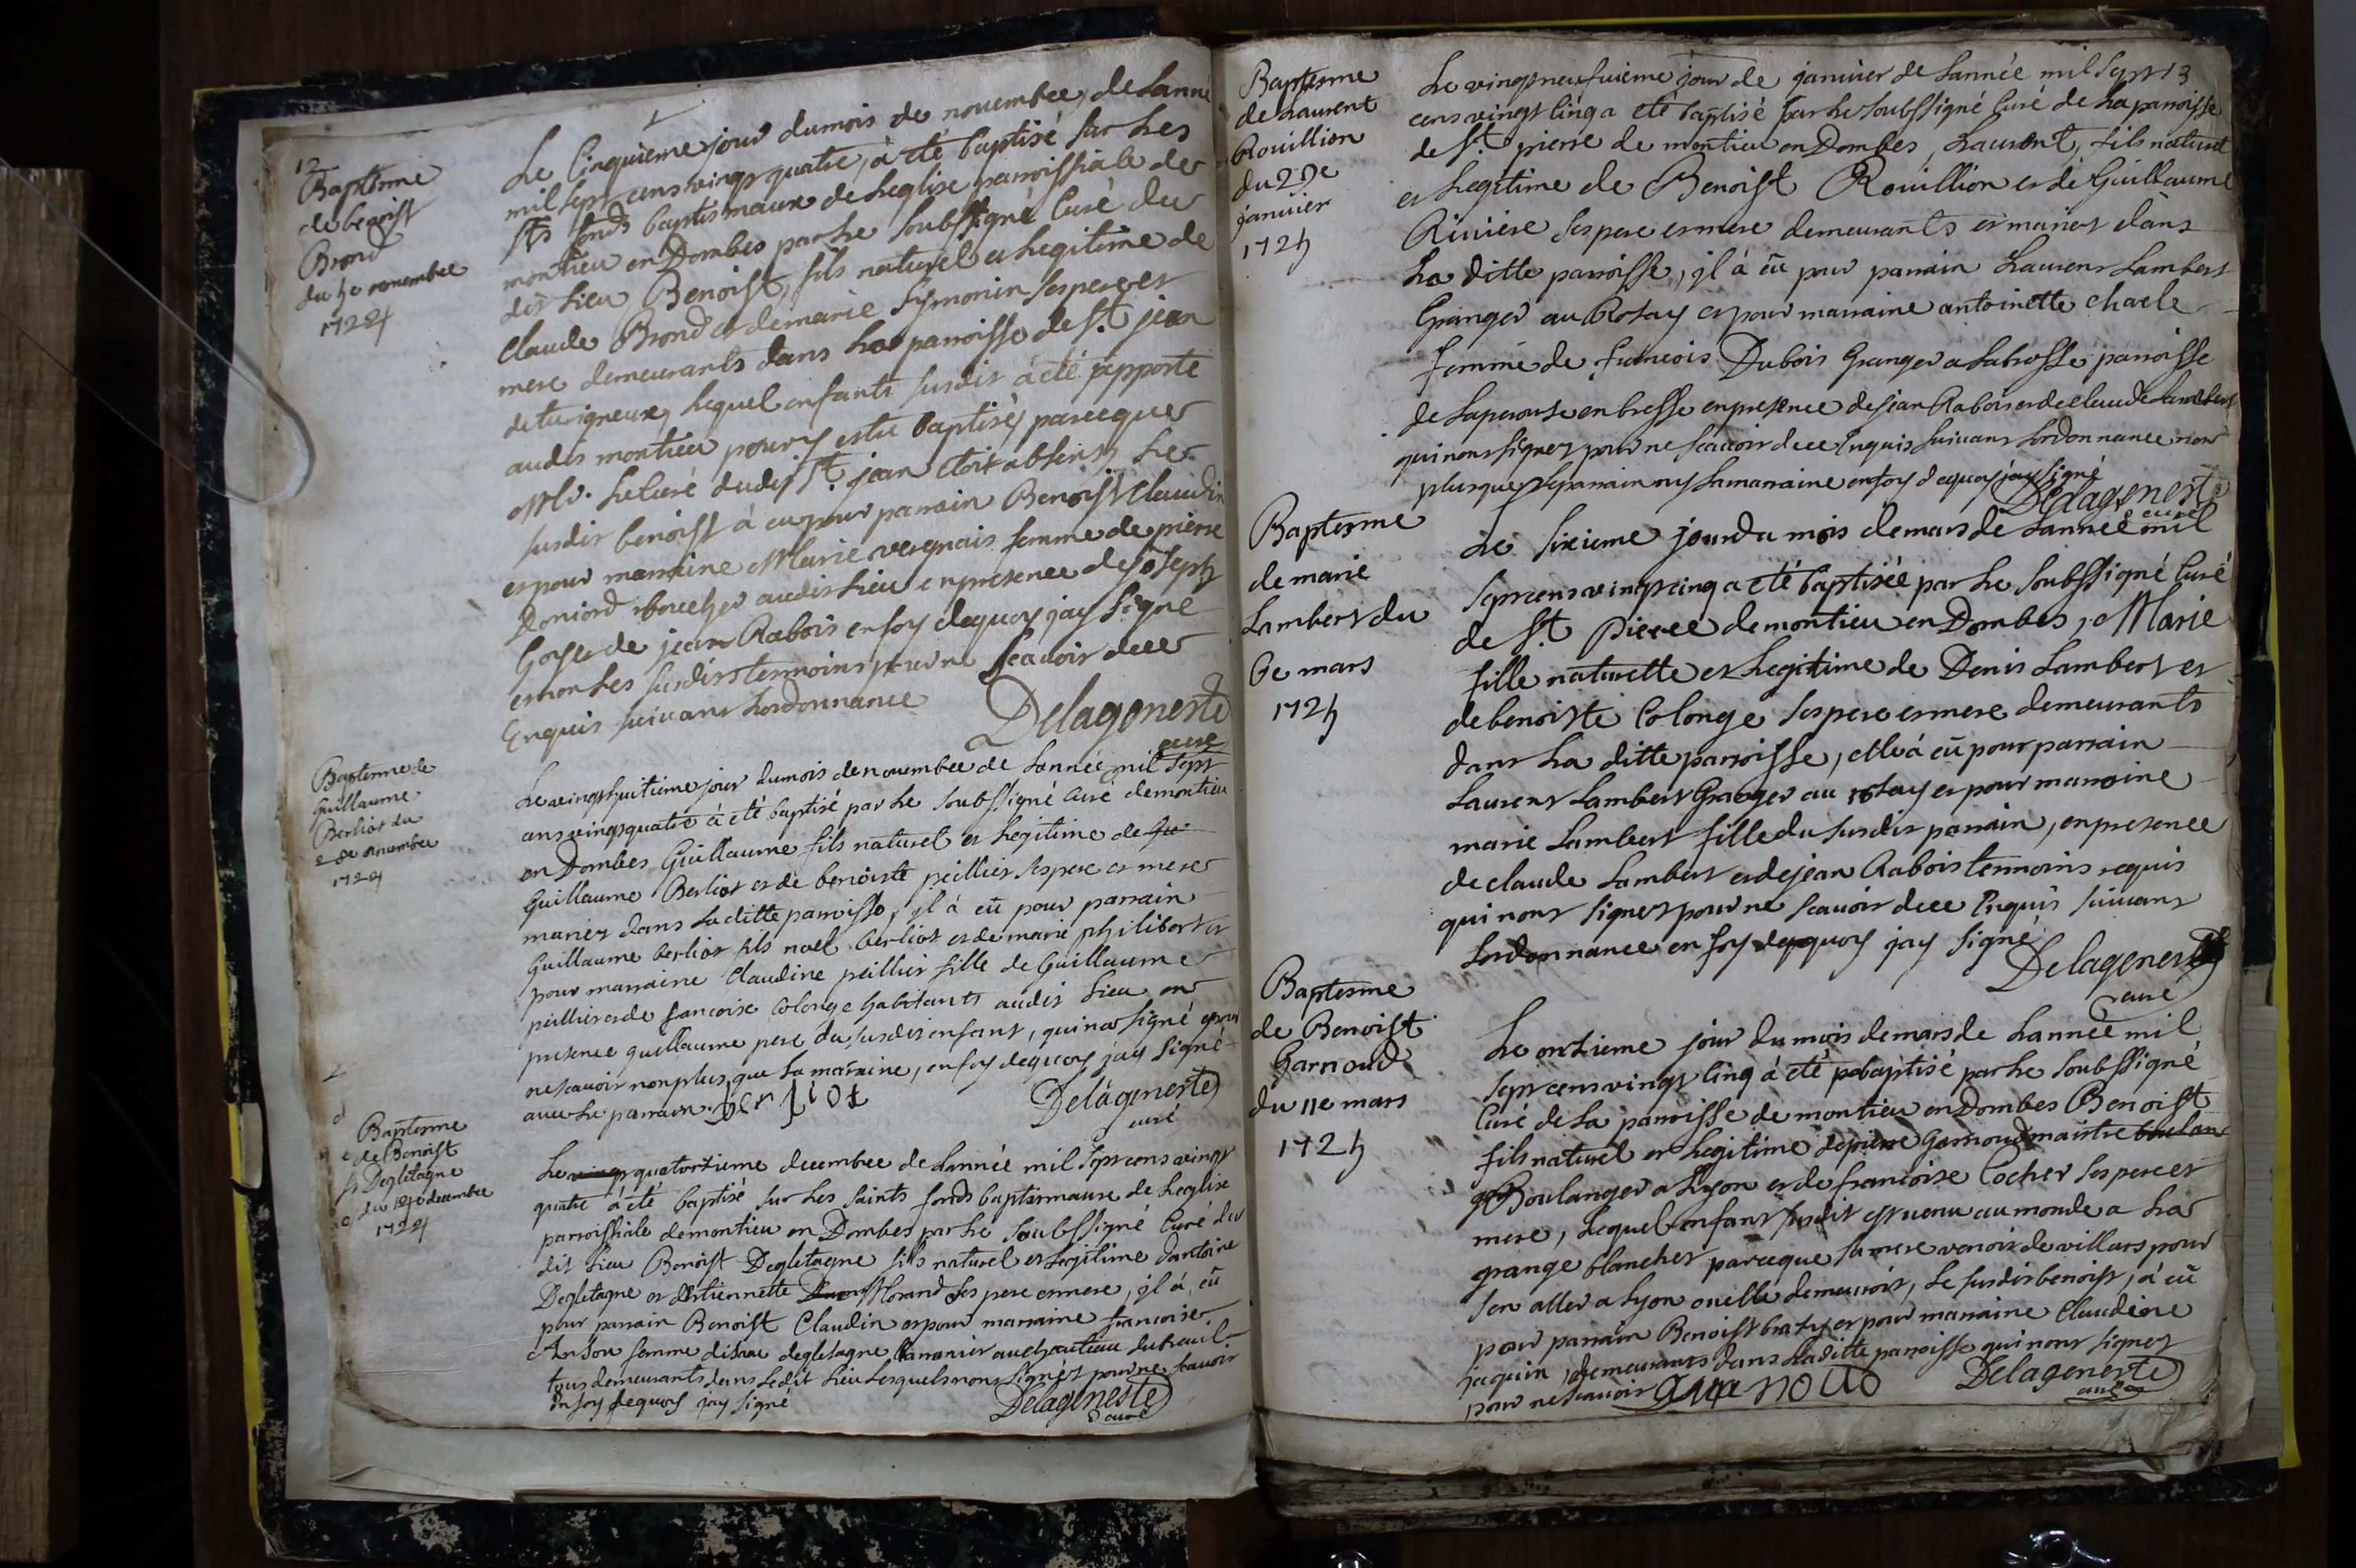 12
Baptesme
de benoist
Brond
du 5e novembre
1724
Le Cinquieme jour du mois de novembre, de Lanné
mil sept cens vingt quatre, à eté baptisé sur Les
sts fonds baptismaux de Leglise parroissiale de
montieu en Dombes par Le soubssigné Curé du
dit Lieu Benoist, fils naturel et Legitime de
Claude Brond et de marie Symonin ses pere et
mere demeurants dans La parroisse de St. jean
de turigneux, Lequel enfants susdit à eté apporté
audit montieu pour y estre baptisé, parceque
Mr. Le Curé dudit St. jean etoit absent, Le
susdit benoist à eu pour parrain Benoist Claudin
et pour marraine Marie vergnais femme de pierre
Doniord boucher audit Lieu en presence de joseph
Goyet de jean Rabois en foy dequoy jay signé
et non Les susdits tesmoins pour ne scavoir de ce
Enquis suivant Lordonnance
Delageneste
curé
Baptesme de
Guillaume
Berliot du
28e novembre
1724
Le vingt huitieme jour du mois de novembre de Lannée mil sept
cens vingt quatre à eté baptisé par Le soubssigné Curé de montieu
en Dombes Guillaume fils naturel et Legitime de Gu
Guillaume Berliot et de benoiste peillier ses pere et mere
mariez dans La ditte parroisse, jl à eû pour parrain
Guillaume berliot fils noel berliot et de marie philibert et
pour marraine Claudine peillier fille de Guillaume
peillier et de francoise Colonge habitants audit Lieu en
presence guillaume pere du susdit enfant, qui na signé pour
ne scavoir non plus que La maraine, en foy dequoy jay signé
avec Le parrain. berliot
Delageneste
curé
Baptesme
de Benoist
Degletagne
du 14e decembre
1724
Le vingt quatorzieme decembre de Lannée mil sept cens vingt
quatre à eté baptisé sur Les saints fonds baptismaux de Leglise
parroissiale de montieu en Dombes par Le soubssigné Curé du
dit Lieu Benoist Degletagne fils naturel et Legitime dantoine
Degletagne et destiennette Morand ses pere et mere, jl à eû
pour parrain Benoist Claudin et pour marraine francoise
Anson femme disaac degletagne
tous demeurants dans Ledit Lieu Lesquels nont signéz pour ne scavoir
en foy dequoy jay signé
Delageneste
curé
Baptesme
de Laurent
Rouillion
du 29e
janvier
1725
13
Le vingt neufuieme jour de janvier de Lannée mil sept
cens vingt Cinq a eté baptisé par Le soubssigné Curé de La parroisse
de St. pierre de montieu en Dombes, Laurent, fils naturel
et Legitime de Benoist Rouillion et de Guillaume
Riviere ses pere et mere demeurants et mariez dans
La ditte parroisse, jl à eû pour parrain Laurent Lambert
Granger au Rosay et pour marraine antoinette charle
femme de francois Dubois Granger a Labrosse parroisse
de Laperouse en bresse en presence de jean Rabois et de claude Lambert
qui nont signez pour ne scavoir de ce Enquis suivant Lordonnance non
plus que Le parrain ny La marraine en foy dequoy jay signé
Delageneste
curé
Baptesme
de marie
Lambert du
6e mars
1725
Le sixieme jour du mois de mars de Lannée mil
sept cens vingt cinq a eté baptisée par Le soubssigné Curé
de St. Pierre de montieu en Dombes, Marie
fille naturelle et Legitime de Denis Lambert et
de benoiste Colonge ses pere et mere demeurants
dans La ditte parroisse, elle à eû pour parrain
Laurent Lambert Granger au rosay et pour marraine
marie Lambert fille du susdit parrain, en presence
de claude Lambert et de jean Rabois tesmoins requis
qui nont signez pour ne scavoir de ce Enquis suivant
Lordonnance en foy dequoy jay signé
Delageneste
curé
Baptesme
de Benoist
Garnoud
du 11e mars
1725
Le onzieme jour du mois de mars de Lannée mil
sept cens vingt Cinq à eté baptisé par Le soubssigné
Curé de La parroisse de montieu en Dombes Benoist
fils naturel et Legitime de pierre Garnoud maistre boulan
Boulanger a Lyon et de francoise Cocher ses pere et
mere, Lequel enfant susdit est venu au monde a La
grange blanchet parceque sa mere venoit de villars pour
sen aller a Lyon ou elle demeuroit, Le susdit benoist, à eû
pour parrain Benoist braty et pour marraine Claudine
jaquin, demeurants dans La ditte parroisse qui nont signez
pour ne scavoir
Delageneste
curé